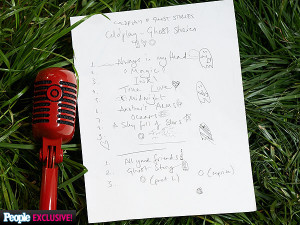 COLDPLAY GHOST STORIES
Coldplay - Ghost Stories
1. Always in my Head
2. Magic
3. Ink
4. True Love
5. Midnight
6. Another's Arms
7. Oceans
8. A Sky full of Stars
9.
1. All your friends
2. Ghost Story
3. O (part 2)
O (reprise)
People EXCLUSIVE!